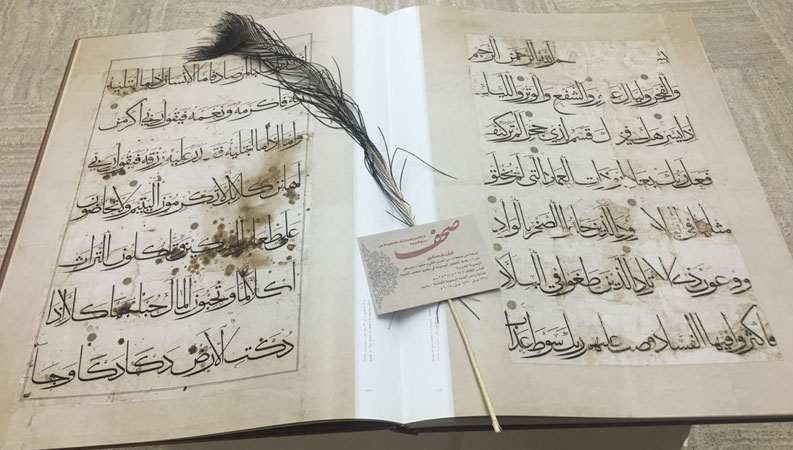 بسم الله الرحمن الرحيم
والفجر وليال عشر والشفع والوتر والليل
اذا يسر هل في ذلك قسم لذي حجر الم تر كيف
فعل ربك بعاد ارم ذات العماد التي لم يخلق
مثلها في البلاد وثمود الذين جابوا الصخر بالواد
وفرعون ذي الاوتاد الذين طغوا في البلاد
فاكثروا فيها الفساد فصب عليهم ربك سوط عذاب
ان ربك لبالمرصاد فاما الانسان اذا ما ابتليه
ربه فاكرمه ونعمه فيقول ربي اكرمن
واما اذا ما ابتليه فقدر عليه رزقه فيقول ربي
اهانن كلا بل لا تكرمون اليتيم ولا تحاضون
على طعام المسكين وتاكلون التراث
اكلا لما وتحبون المال حبا جما كلا اذا
دكت الارض دكا دكا وجا
صحف